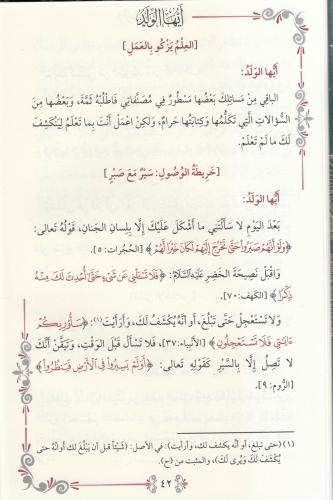 أَيُّهَا الوَلَدُ
[العِلْمُ يَزْكُو بِالعَمَلِ]
أَيُّها الوَلَدُ:
الباقِي مِنْ مَسائِلِكَ بَعْضُها مَسْطُورٌ فِي مُصَنَّفاتِي فَاطْلُبْهُ ثَمَّةَ، وَبَعْضُها مِنَ
السُّؤالاتِ الَّتِي تَكَلُّمُها وَكِتابَتُها حَرامٌ، وَلكِنْ اِعْمَلْ أَنْتَ بِما تَعْلَمُ لِيَنْكَشِفَ
لَكَ ما لَمْ تَعْلَمْ.
[خَرِيطَةُ الوُصُولِ: سَيْرٌ مَعَ صَبْرٍ]
أَيُّها الوَلَدُ:
بَعْدَ اليَوْمِ لا تَسْأَلْنِي ما أَشْكَلَ عَلَيْكَ إِلَّا بِلِسانِ الجَنانِ، قَوْلُهُ تَعالى:
﴿وَلَوْ أَنَّهُمْ صَبَرُوا حَتَّى تَخْرُجَ إِلَيْهِمْ لَكَانَ خَيْرًا لَّهُمْ﴾ [الحُجُرات: ٥].
وَاقْبَلْ نَصِيحَةَ الخَضِرِ عَلَيْهِ السَّلَامُ: ﴿فَلَا تَسْـَٔلْنِي عَن شَىْءٍ حَتَّىٰٓ أُحْدِثَ لَكَ مِنْهُ
ذِكْرًا﴾ [الكَهف: ٧٠].
وَلا تَسْتَعْجِلْ حَتَّى تَبْلُغَ، أَو أَنَّهُ يُكْشَفُ لَكَ، وَأَرَأَيْتَ(١): ﴿سَأُوْرِيكُمْ
ءَايَٰتِى فَلَا تَسْتَعْجِلُونِ﴾ [الأنبياء: ٣٧]، فَلا تَسْأَلْ قَبْلَ الوَقْتِ، وَتَيَقَّنْ أَنَّكَ
لا تَصِلُ إِلَّا بِالسَّيْرِ كَقَوْلِهِ تعالى: ﴿أَوَلَمْ يَسِيرُوا فِى ٱلْأَرْضِ فَيَنظُرُوا﴾
[الرُّوم: ٩].
(١) (حتى تبلغ، أو أنَّه يكشف لك، وأرأيت): في الأصل: (شَيْئاً قبل أن يَبْلُغَ لك أوانُهُ حتى
يُكْشَفَ لَكَ وَيُرى لَكَ)، والمثبت من (ح).
٤٢